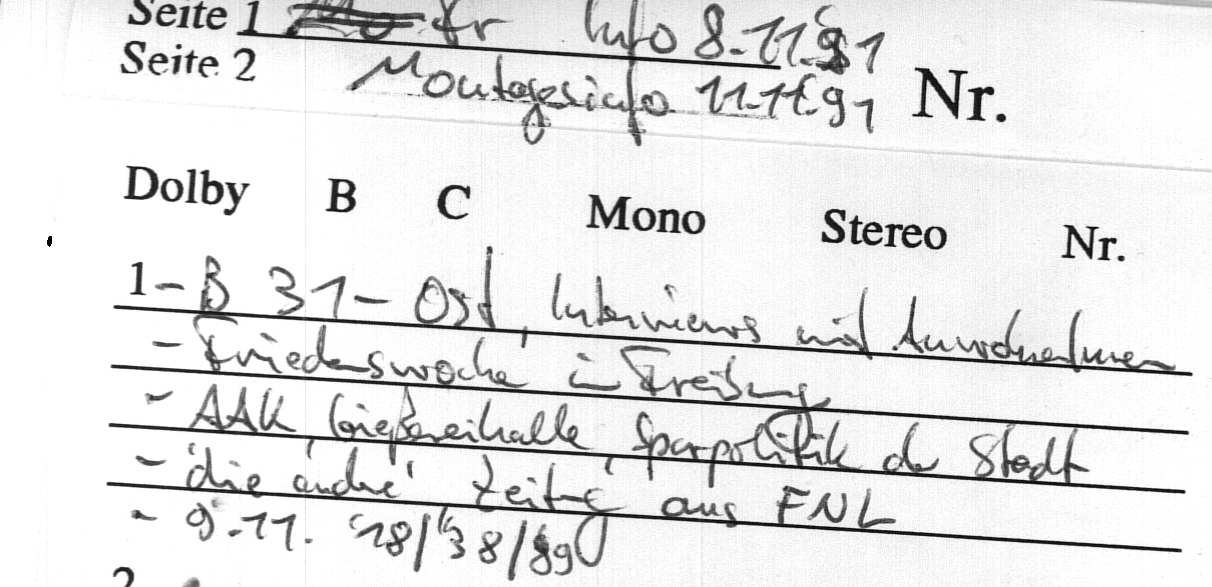 Seite 1 Fr Info 8.11.91
Seite 2 Montagsinfo 11.11.91 Nr.
Dolby B C Mono Stereo Nr.
1 - B 31 - Ost, Interviews mit
- Friedenswoche in Freiburg
- AAK, Gießereihalle, Sparpolitik der Stadt
- 'die andre' Zeitung aus FNL
- 9.11. '18/'38/'89
2